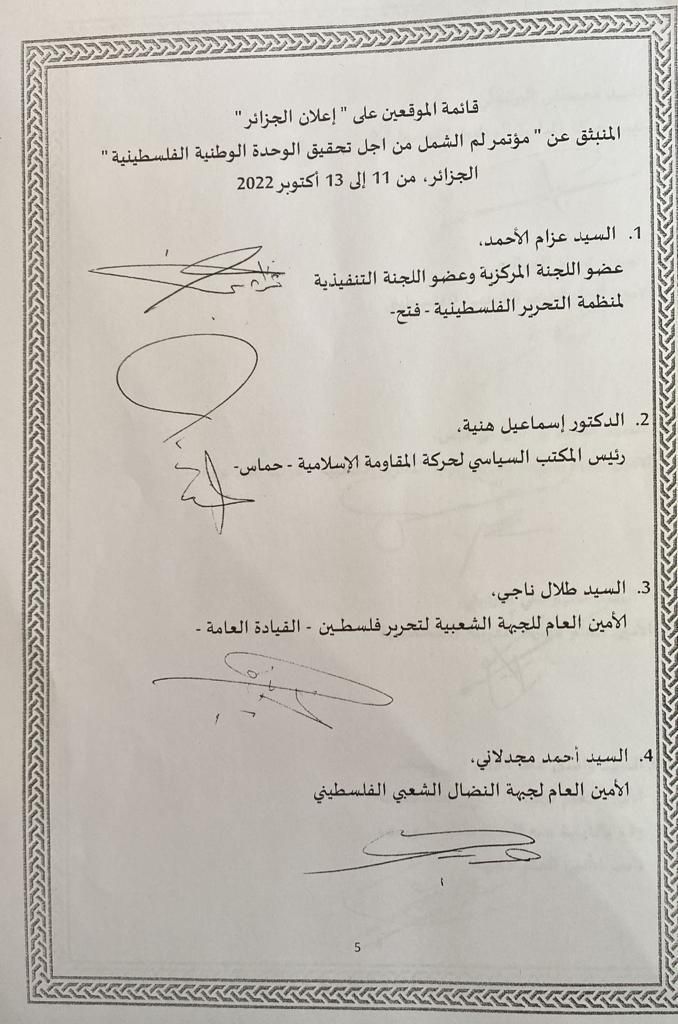 قائمة الموقعين على " إعلان الجزائر "
المنبثق عن " مؤتمر لم الشمل من اجل تحقيق الوحدة الوطنية الفلسطينية "
الجزائر، من 11 إلى 13 أكتوبر 2022
1. السيد عزام الأحمد،
عضو اللجنة المركزية وعضو اللجنة التنفيذية
لمنظمة التحرير الفلسطينية - فتح-
2. الدكتور إسماعيل هنية،
رئيس المكتب السياسي لحركة المقاومة الإسلامية - حماس-
3. السيد طلال ناجي،
الأمين العام للجبهة الشعبية لتحرير فلسطين - القيادة العامة -
4. السيد أحمد مجدلاني،
الأمين العام لجبهة النضال الشعبي الفلسطيني
5